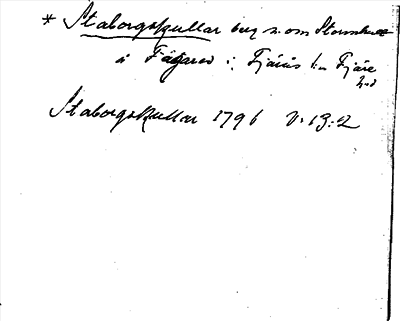 * Staborgskullar berg n. om Stomhult
i Fågared i: Fjärås sn Fjäre
hd
Staborgskullar 1796 V: 13:2